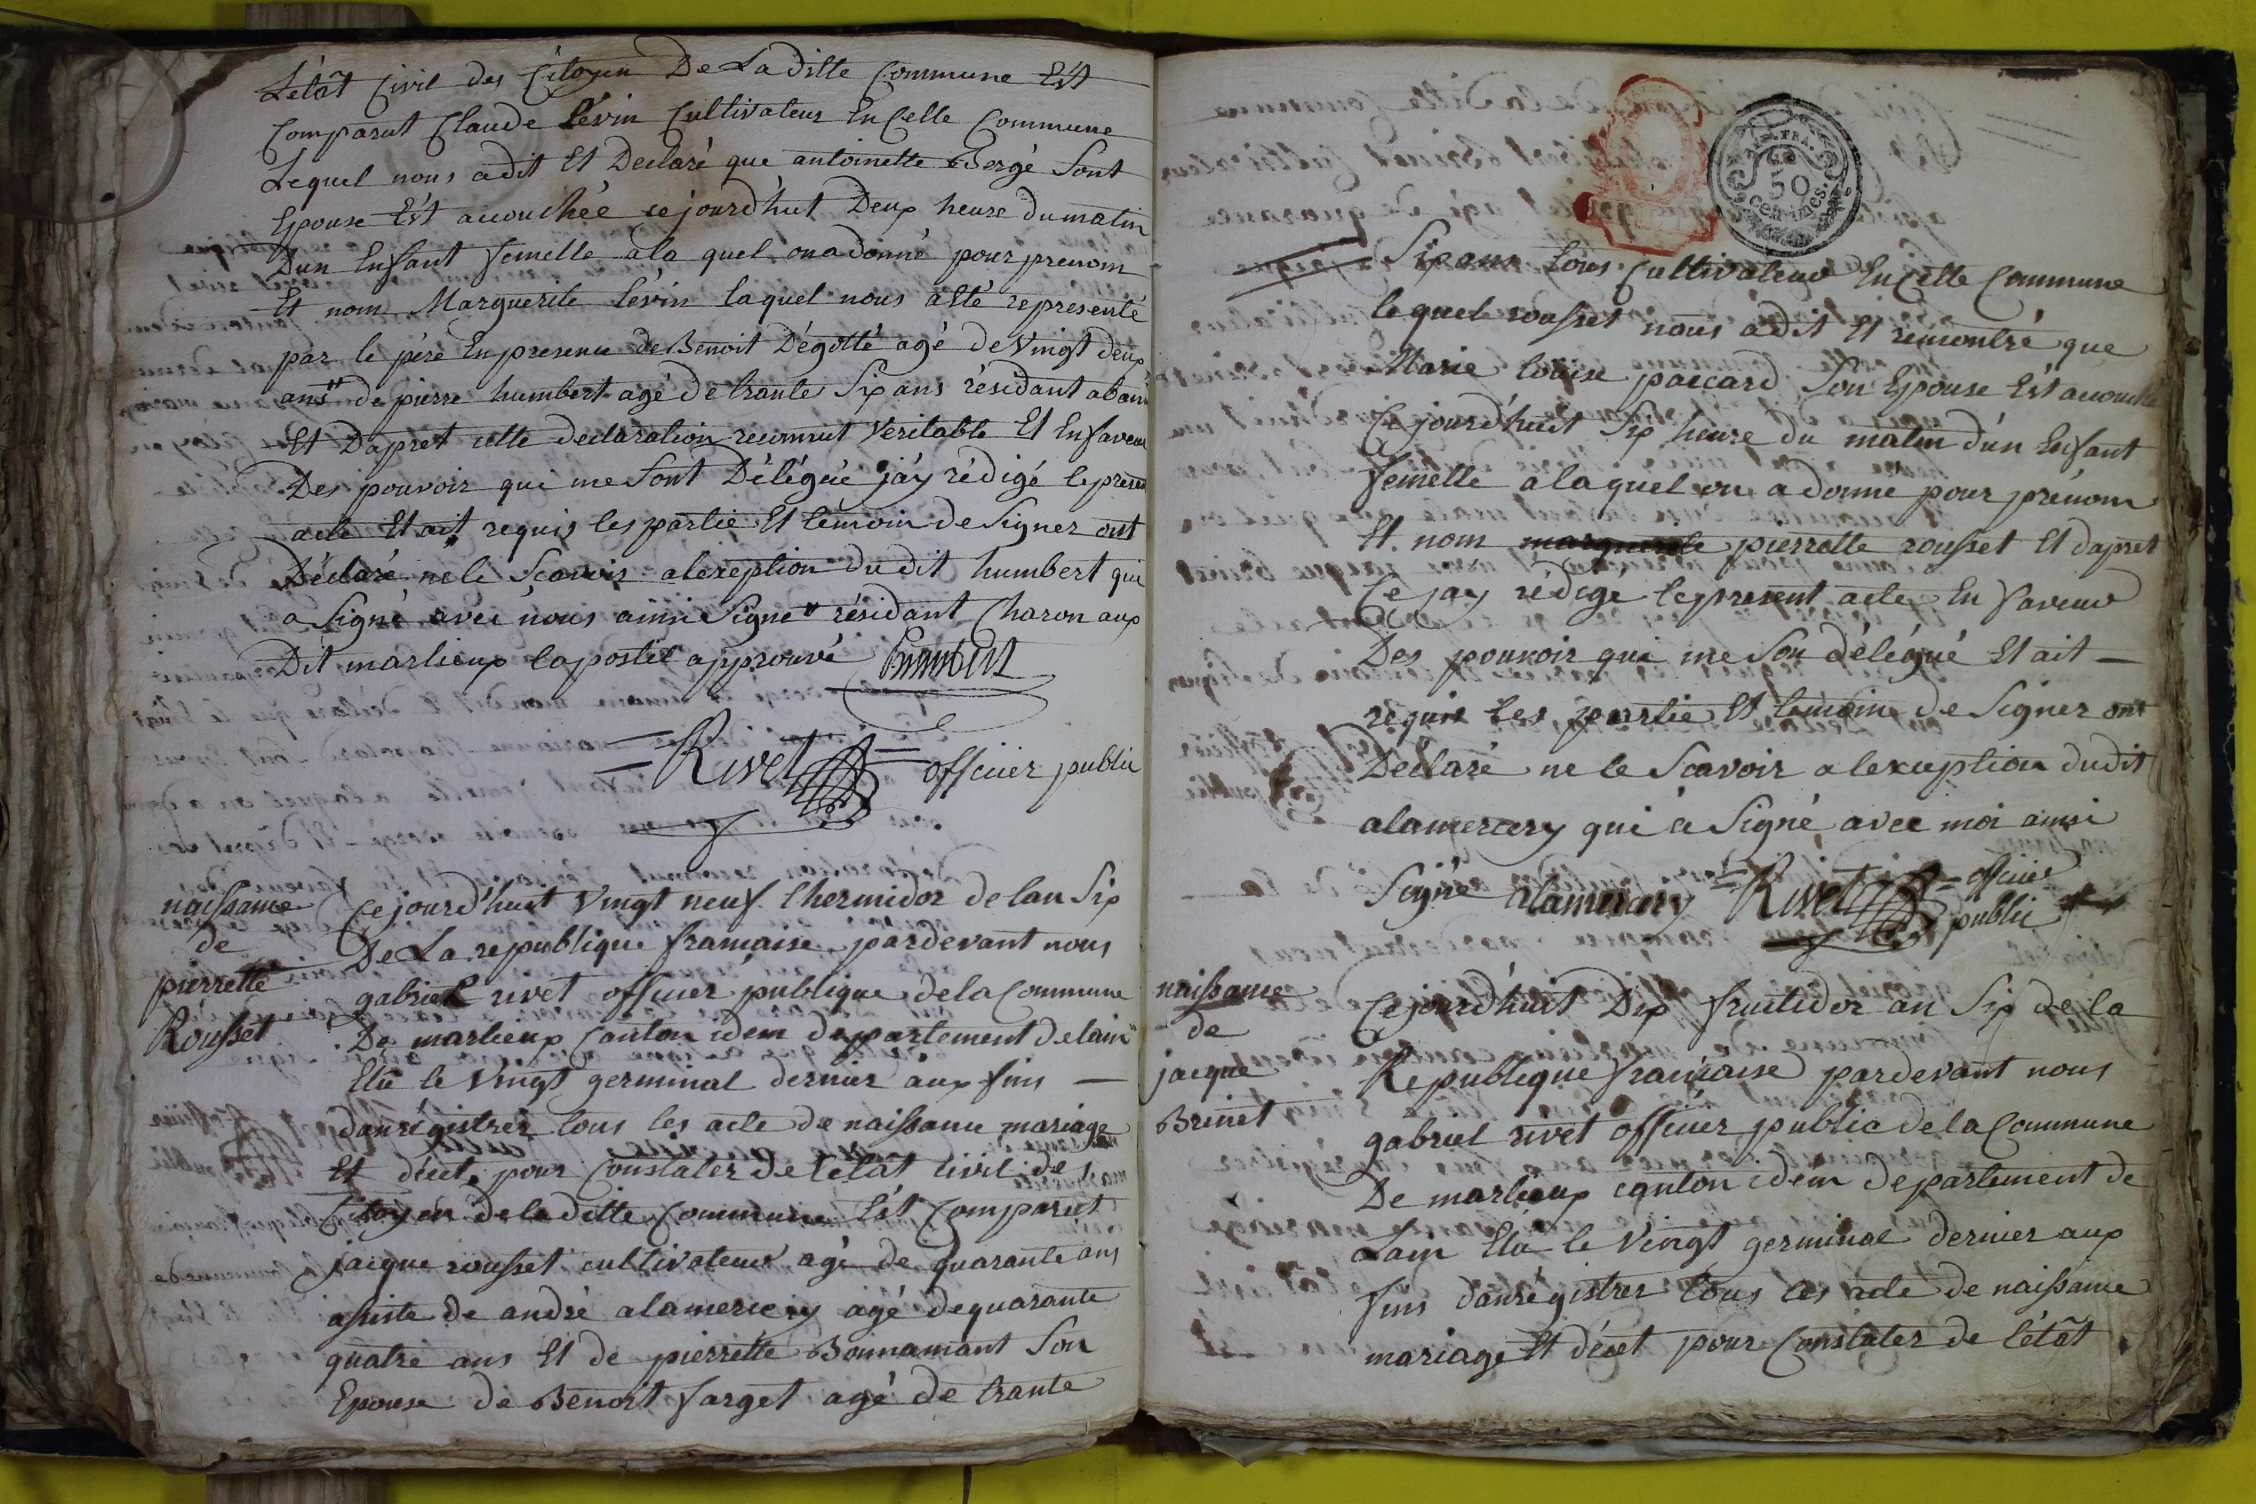 L'état Civil des Citoyen De La ditte Commune Est
Comparut Claude Lévin Cultivateur En Celle Commune
Lequel nous a dit Et Declaré que antoinette Bergé Sont
Epouse Est accouchée ce jourd'hut Deux heure du matin
Dun Enfant femelle a la quel on a donné pour prenom
Et nom Marguerite Lévin laquel nous a été representé
par le père En presence de Benoit Dégotté agé de Vingt deux
ans" de pierre humbert agé de trante Six ans résidant
Et Dapret cette declaration reconnut Veritable Et En faveur
Des pouvoir qui me Sont Délégué j'ay rédigé le présen
acte Et ait requis les partie Et temoin de Signer ont
Déclaré ne le Scavoir a lexeption du dit humbert qui
a Signé avec nous ainsi Signé " résidant Charon aux
Dit marlieux lapostil approuvé humbert
= Rivet = officier public
naissance
de
pierrette
Rousset
Ce jourd'huit Vingt neuf thermidor de lan Six
De La republique francaise pardevant nous
gabriel rivet officier publique de la Commune
De marlieux Canton idem departement de lain
Elu le Vingt germinal dernier aux fins —
danrégistrer tous les acte de naissance mariage
Et décet pour Constater de l'état Civil de
Citoyen de la ditte Commune Est Comparut
jacque rousset cultivateur agé de quarante ans
assisté de andré alamercery agé de quarante
quatre ans Et de pierrette Bonnamant Son
Epouse de Benoit farget agé de trante
TIM. FR.
50
centimes.
Six ans tous Cultivateur En Celle Commune
lequel rousset nous a dit Et remontré que
Marie louise paccard Son Epouse Est accouché
Ce jourd'huit Six heure du matin d'un Enfant
femelle a laquel on a donné pour prénom
Et nom marguerite pierrette rousset Et dapret
Ce jay rédigé le present acte En faveur
Des pouvoir qui me Son délégué Et ait —
requis les partie Et temoin de Signer ont
Déclaré ne le Scavoir a lexception dudit
alamercery qui a Signé avec moi ainsi
Signé alamercery = Rivet = officier
public
naissance
de
jacque
Brinet
Ce jourd'huit Dix fructidor an Six de la
Republique francaise pardevant nous
gabriel rivet officier public de la Commune
De marlieux canton idem departement de
Lain Elu le Vingt germinal dernier aux
fins danrégistrer tous les acte de naissance
mariage Et décet pour Constater de l'état